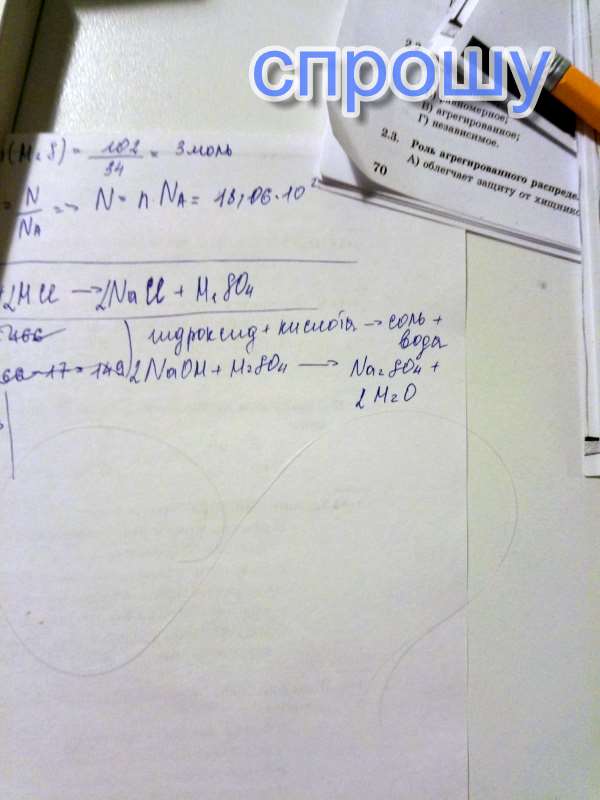 спрошу
2.2
равномерное;
В) агрегированное;
Г) независимое.
2.3. Роль агрегированного распреде
А) облегчает защиту от хищнико
70
(H₂S) = 102/34 = 3 моль
= N/NA => N = n · NA = 18,06 · 10²
2HCl → 2NaCl + H₂SO₄
гидроксид + кислота → соль + вода
2NaOH + H₂SO₄ → Na₂SO₄ + 2H₂O